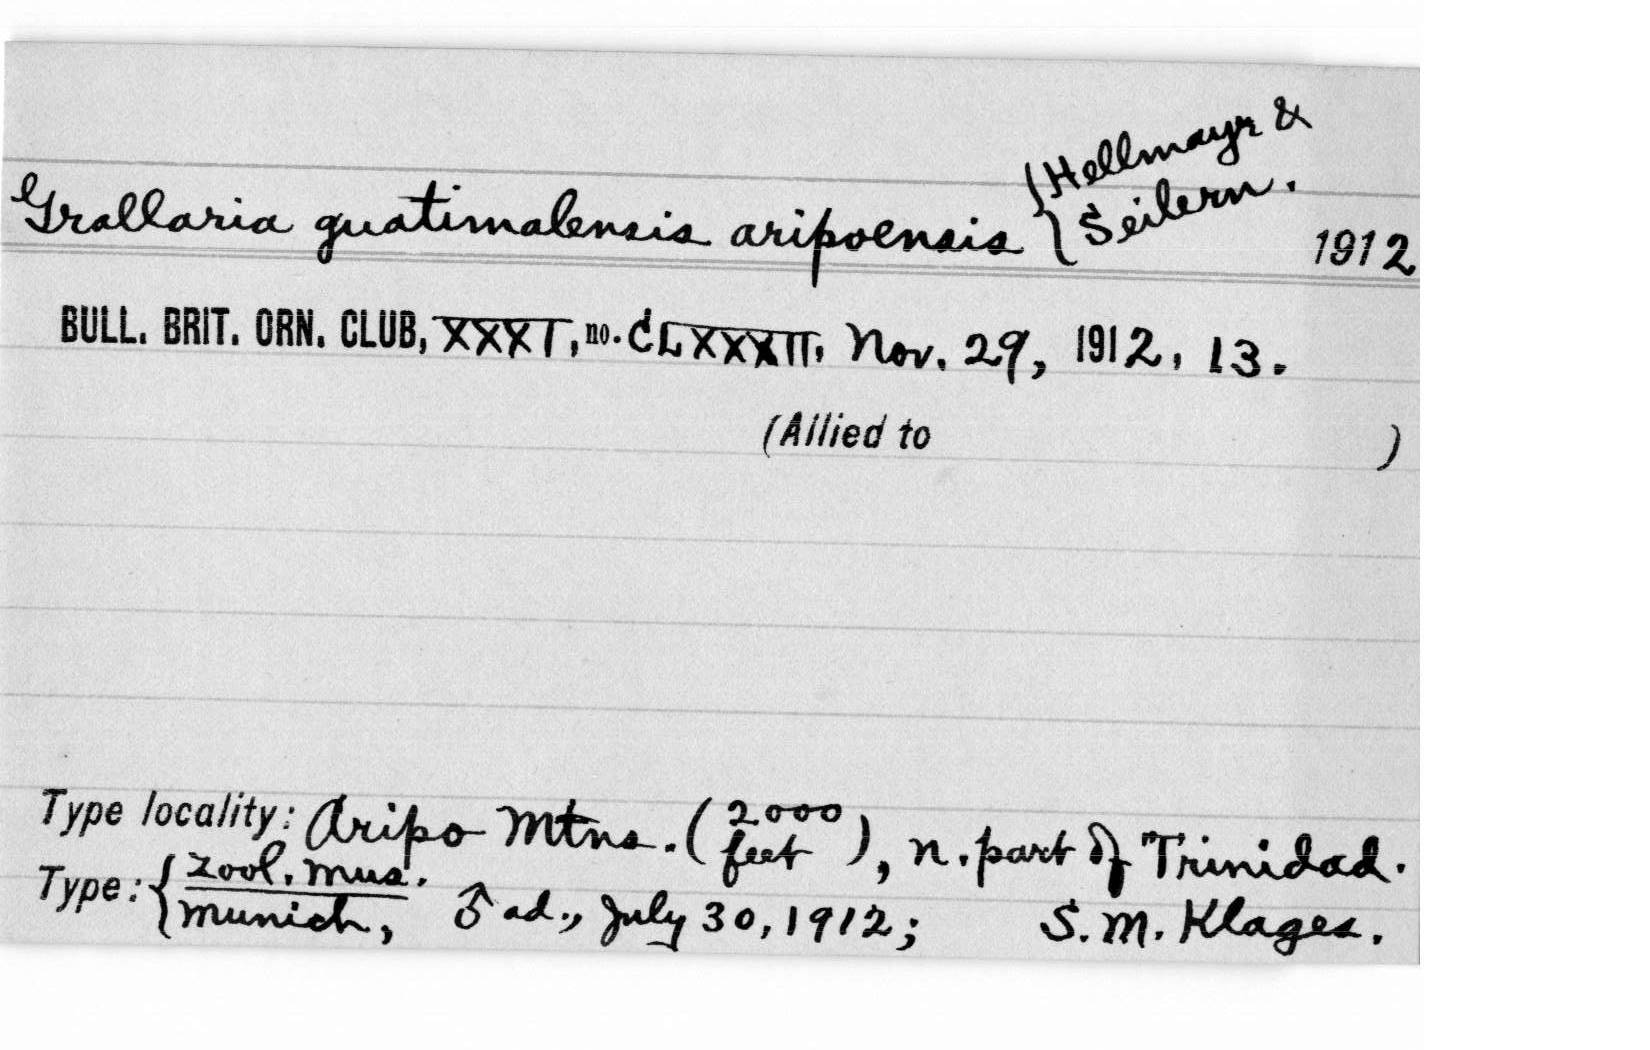 Grallaria guatimalensis aripoensis {Hellmayr & Seilern. 1912
BULL. BRIT. ORN. CLUB, XXXI, no. CLXXXII, Nov. 29, 1912, 13.
(Allied to )
Type locality: Aripo Mtns. (2000 feet), n. part of Trinidad.
Type: {Zool. Mus. Munich, ♂ ad., July 30, 1912; S. M. Klages.